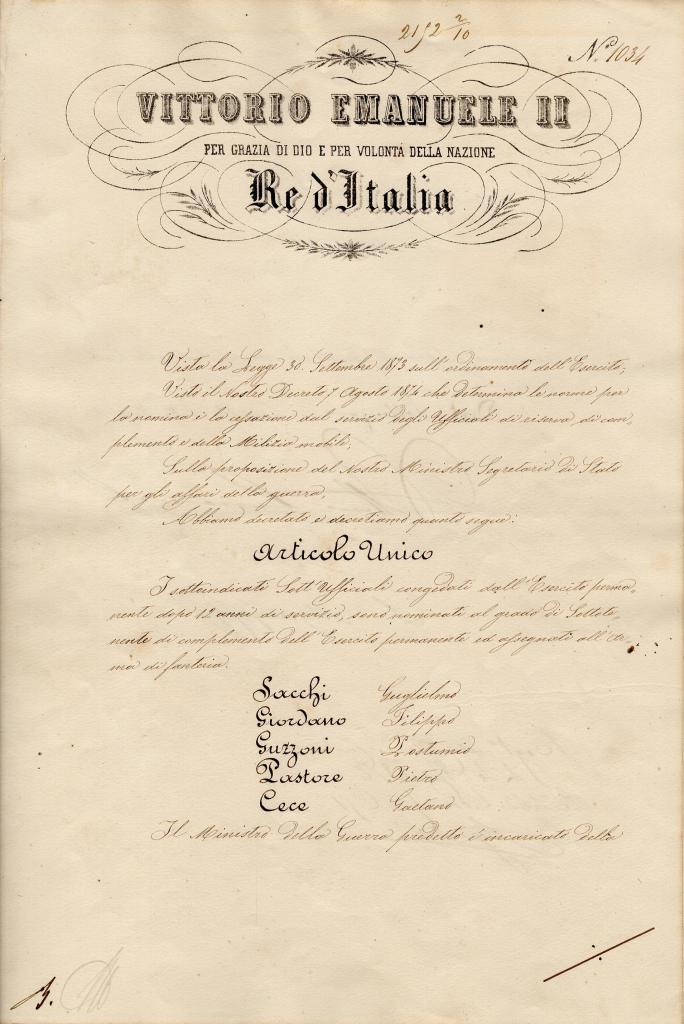 2152 2/10
N.° 1034
VITTORIO EMANUELE II
PER GRAZIA DI DIO E PER VOLONTÀ DELLA NAZIONE
Re d'Italia
Vista la Legge 30. Settembre 1873 sull'ordinamento dell'Esercito;
Visto il Nostro Decreto 7 Agosto 1874 che determina le norme per
la nomina e la cessazione dal servizio degli Ufficiali di riserva, di com,
plemento e della Milizia mobile;
Sulla proposizione del Nostro Ministro Segretario di Stato
per gli affari della guerra,
Abbiamo decretato e decretiamo quanto segue:
Articolo Unico
I sottoindicati Sott'Ufficiali congedati dall'Esercito perma,
nente dopo 12 anni di servizio, sono nominati al grado di Sottote,
nente di complemento dell'Esercito permanente ed assegnati all'ar,
ma di fanteria.
Sacchi Guglielmo
Giordano Filippo
Guzzoni Postumio
Pastore Pietro
Cece Gaetano
Il Ministro della Guerra predetto è incaricato della